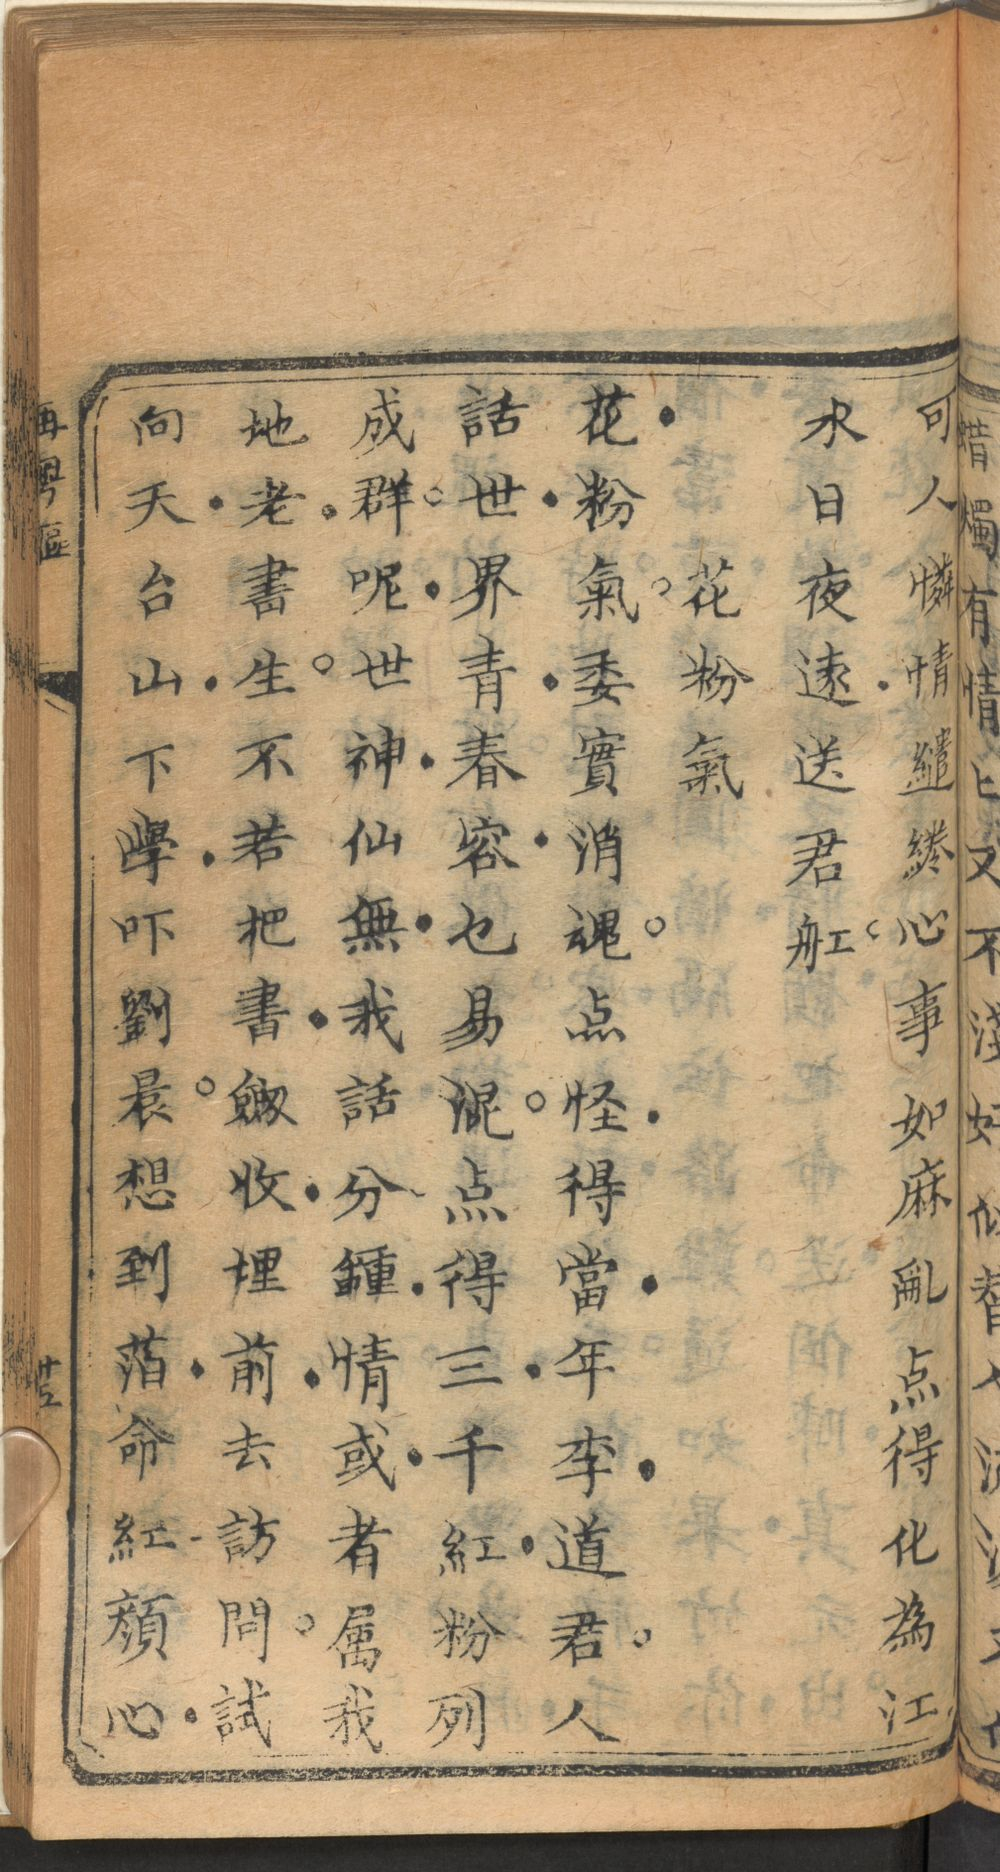 蜡燭有情
可人憐情繾綣心事如麻亂点得化為江
水日夜逺送君舡
花粉氣
花粉氣委實消魂点怪得當年李道君人
話世界青春容乜易混点得三千紅粉列
成群呢世神仙無我話分鍾情或者屬我
地老書生不若把書劔收埋前去訪問試
向天台山下學吓劉晨想到落命紅顔心
再粵謳
廿五